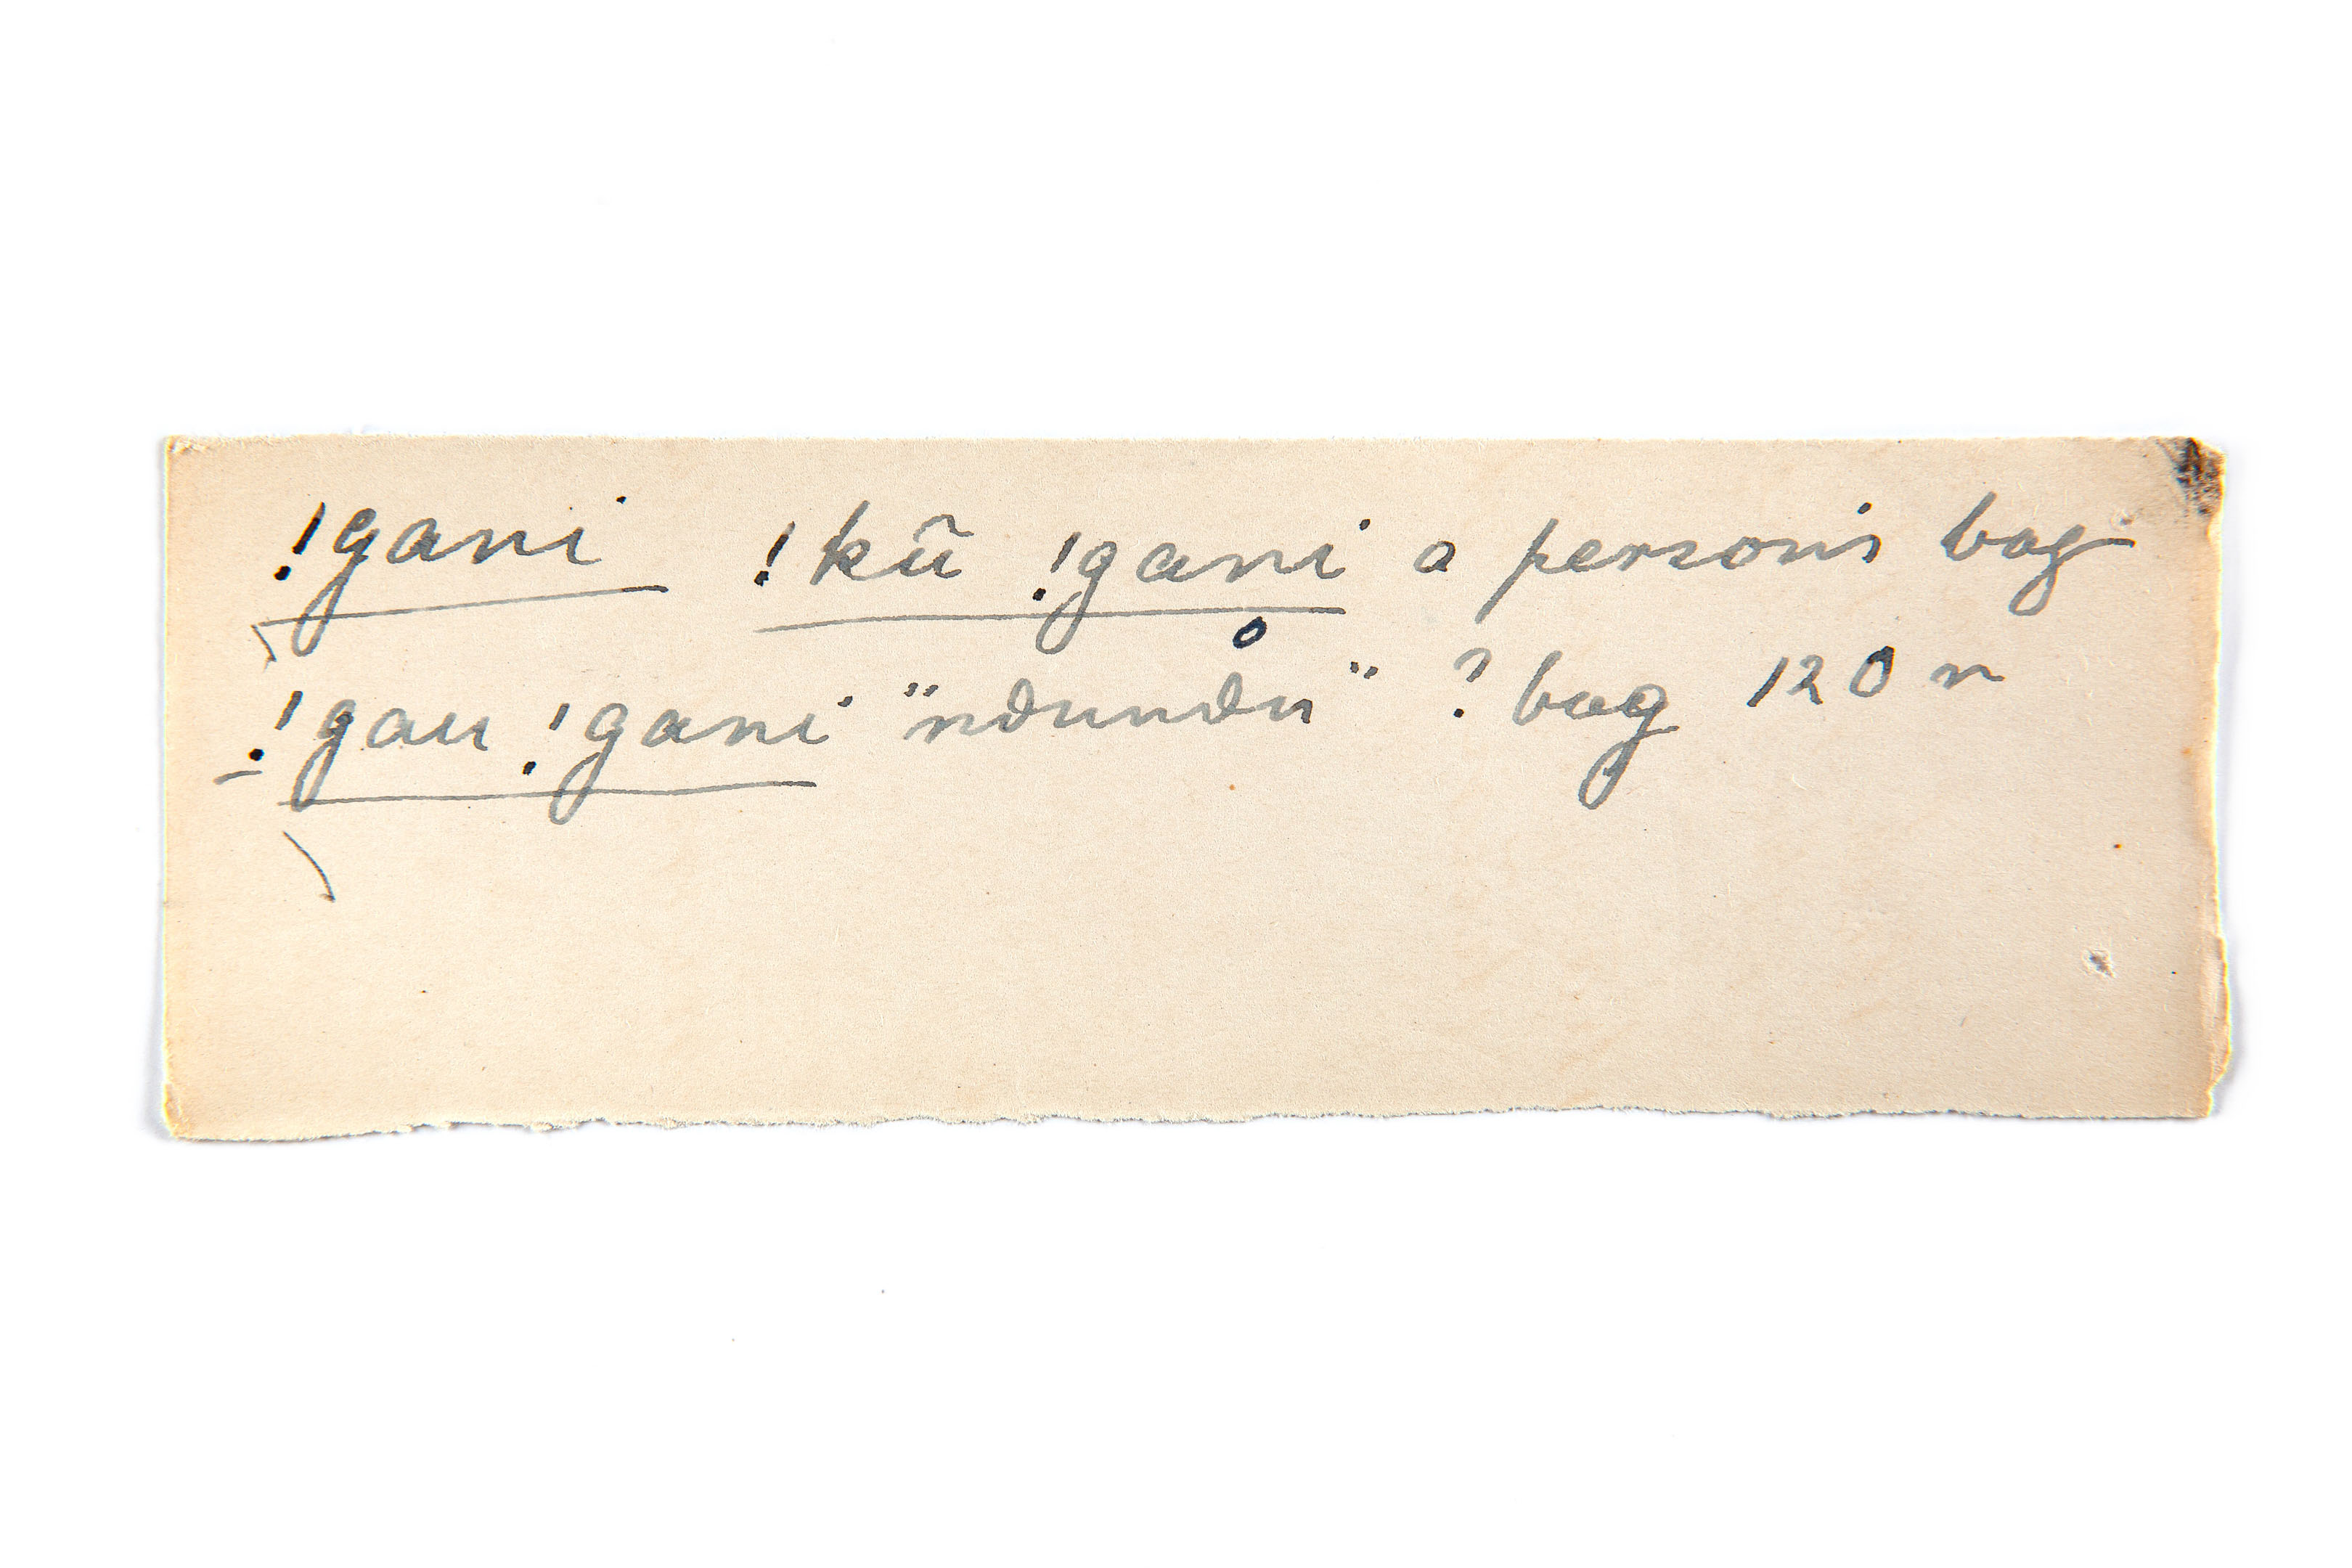 !gani !kũ !gani a person's bag
!gau !gani "ndundu" ? bag 120 r